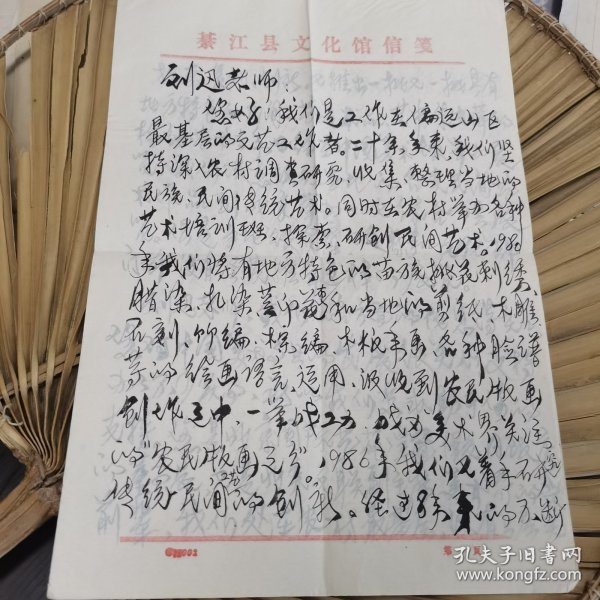 綦江县文化馆信笺
刘迅老师：
您好！我们是工作在偏远山区
最基层的文艺工作者。二十余年来，我们坚
持深入农村调查研究、收集、整理当地的
民族、民间传统艺术。同时在农村举办各种
艺术培训班、探索、研创民间艺术。1983
年我们将有地方特色的苗族挑花刺绣、
腊染、扎染、蓝印花和当地的剪纸、木雕
石刻、竹编、棕编、木板年画、各种脸谱
等的绘画语言运用、汲收到农民版画
创作之中，一举成功，成为美术界关注
的"农民版画之乡"。1986年我们又着手
传统民间的创新。经过多年来的不断
孔夫子旧书网
www.kongfz.com